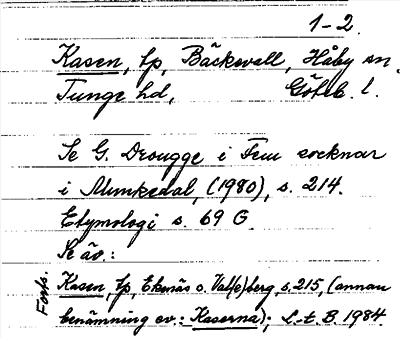 1-2.
Kasen, tp, Bäckevall, Håby sn.
Tunge hd, Göteb. l.
Se G. Drougge i Fem socknar
i Munkedal, (1980), s. 214.
Etymologi s. 69 G
Se äv.:
Kasen, tp, Ekenäs o. Val(e)berg, s. 215, (annan
benämning av: Kaserna); L-t. B. 1984.
Forts.